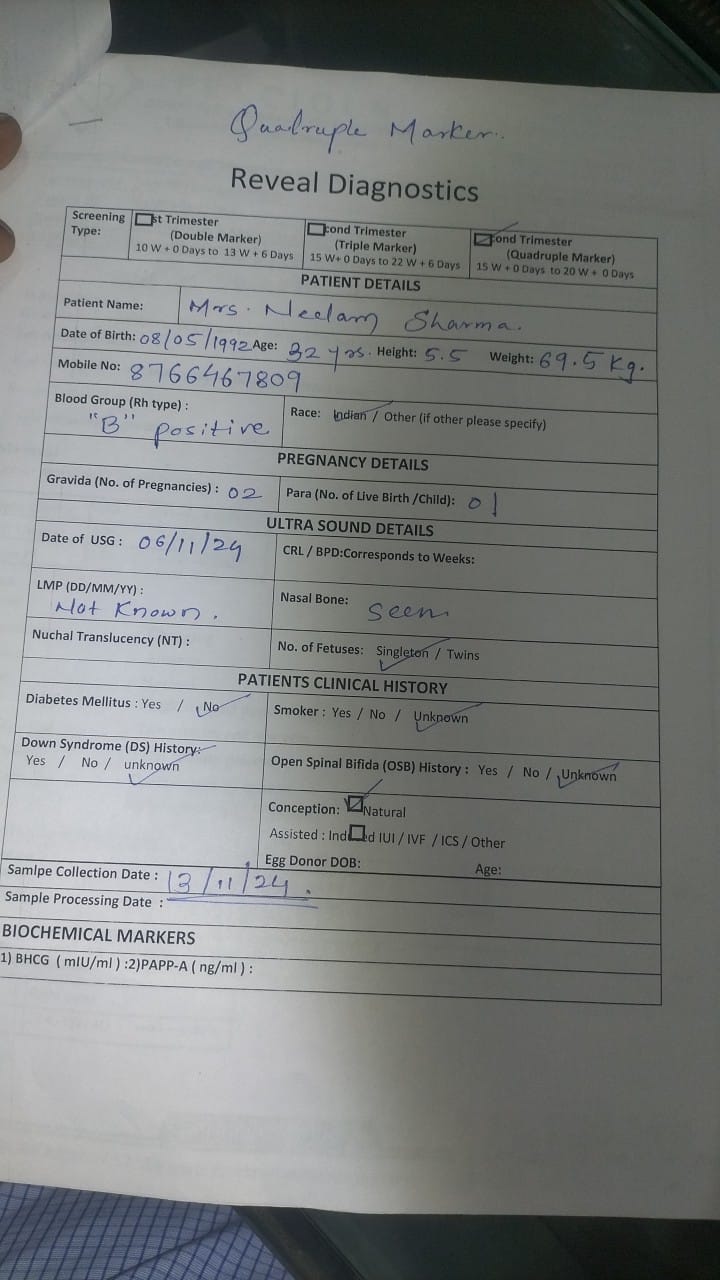 Quadruple Marker..
Reveal Diagnostics
Screening Type:
st Trimester
(Double Marker)
10 W + 0 Days to 13 W + 6 Days
cond Trimester
(Triple Marker)
15 W+ 0 Days to 22 W + 6 Days
ond Trimester
(Quadruple Marker)
15 W + 0 Days to 20 W + 0 Days
PATIENT DETAILS
Patient Name: Mrs. Neelam Sharma.
Date of Birth: 08/05/1992 Age: 32 yrs. Height: 5.5 Weight: 69.5 Kg.
Mobile No: 8766467809
Blood Group (Rh type) : "B" positive
Race: Indian / Other (if other please specify)
PREGNANCY DETAILS
Gravida (No. of Pregnancies) : 02 Para (No. of Live Birth /Child): 01
ULTRA SOUND DETAILS
Date of USG : 06/11/24 CRL / BPD:Corresponds to Weeks:
LMP (DD/MM/YY) : Not Known.
Nasal Bone: Seen
Nuchal Translucency (NT) : No. of Fetuses: Singleton / Twins
PATIENTS CLINICAL HISTORY
Diabetes Mellitus : Yes / No Smoker : Yes / No / Unknown
Down Syndrome (DS) History:
Yes / No / unknown
Open Spinal Bifida (OSB) History : Yes / No / Unknown
Conception: Natural
Assisted : Ind ed IUI / IVF / ICS / Other
Egg Donor DOB: Age:
Samlpe Collection Date : 13/11/24.
Sample Processing Date :
BIOCHEMICAL MARKERS
1) BHCG ( mIU/ml ) :2)PAPP-A ( ng/ml ) :